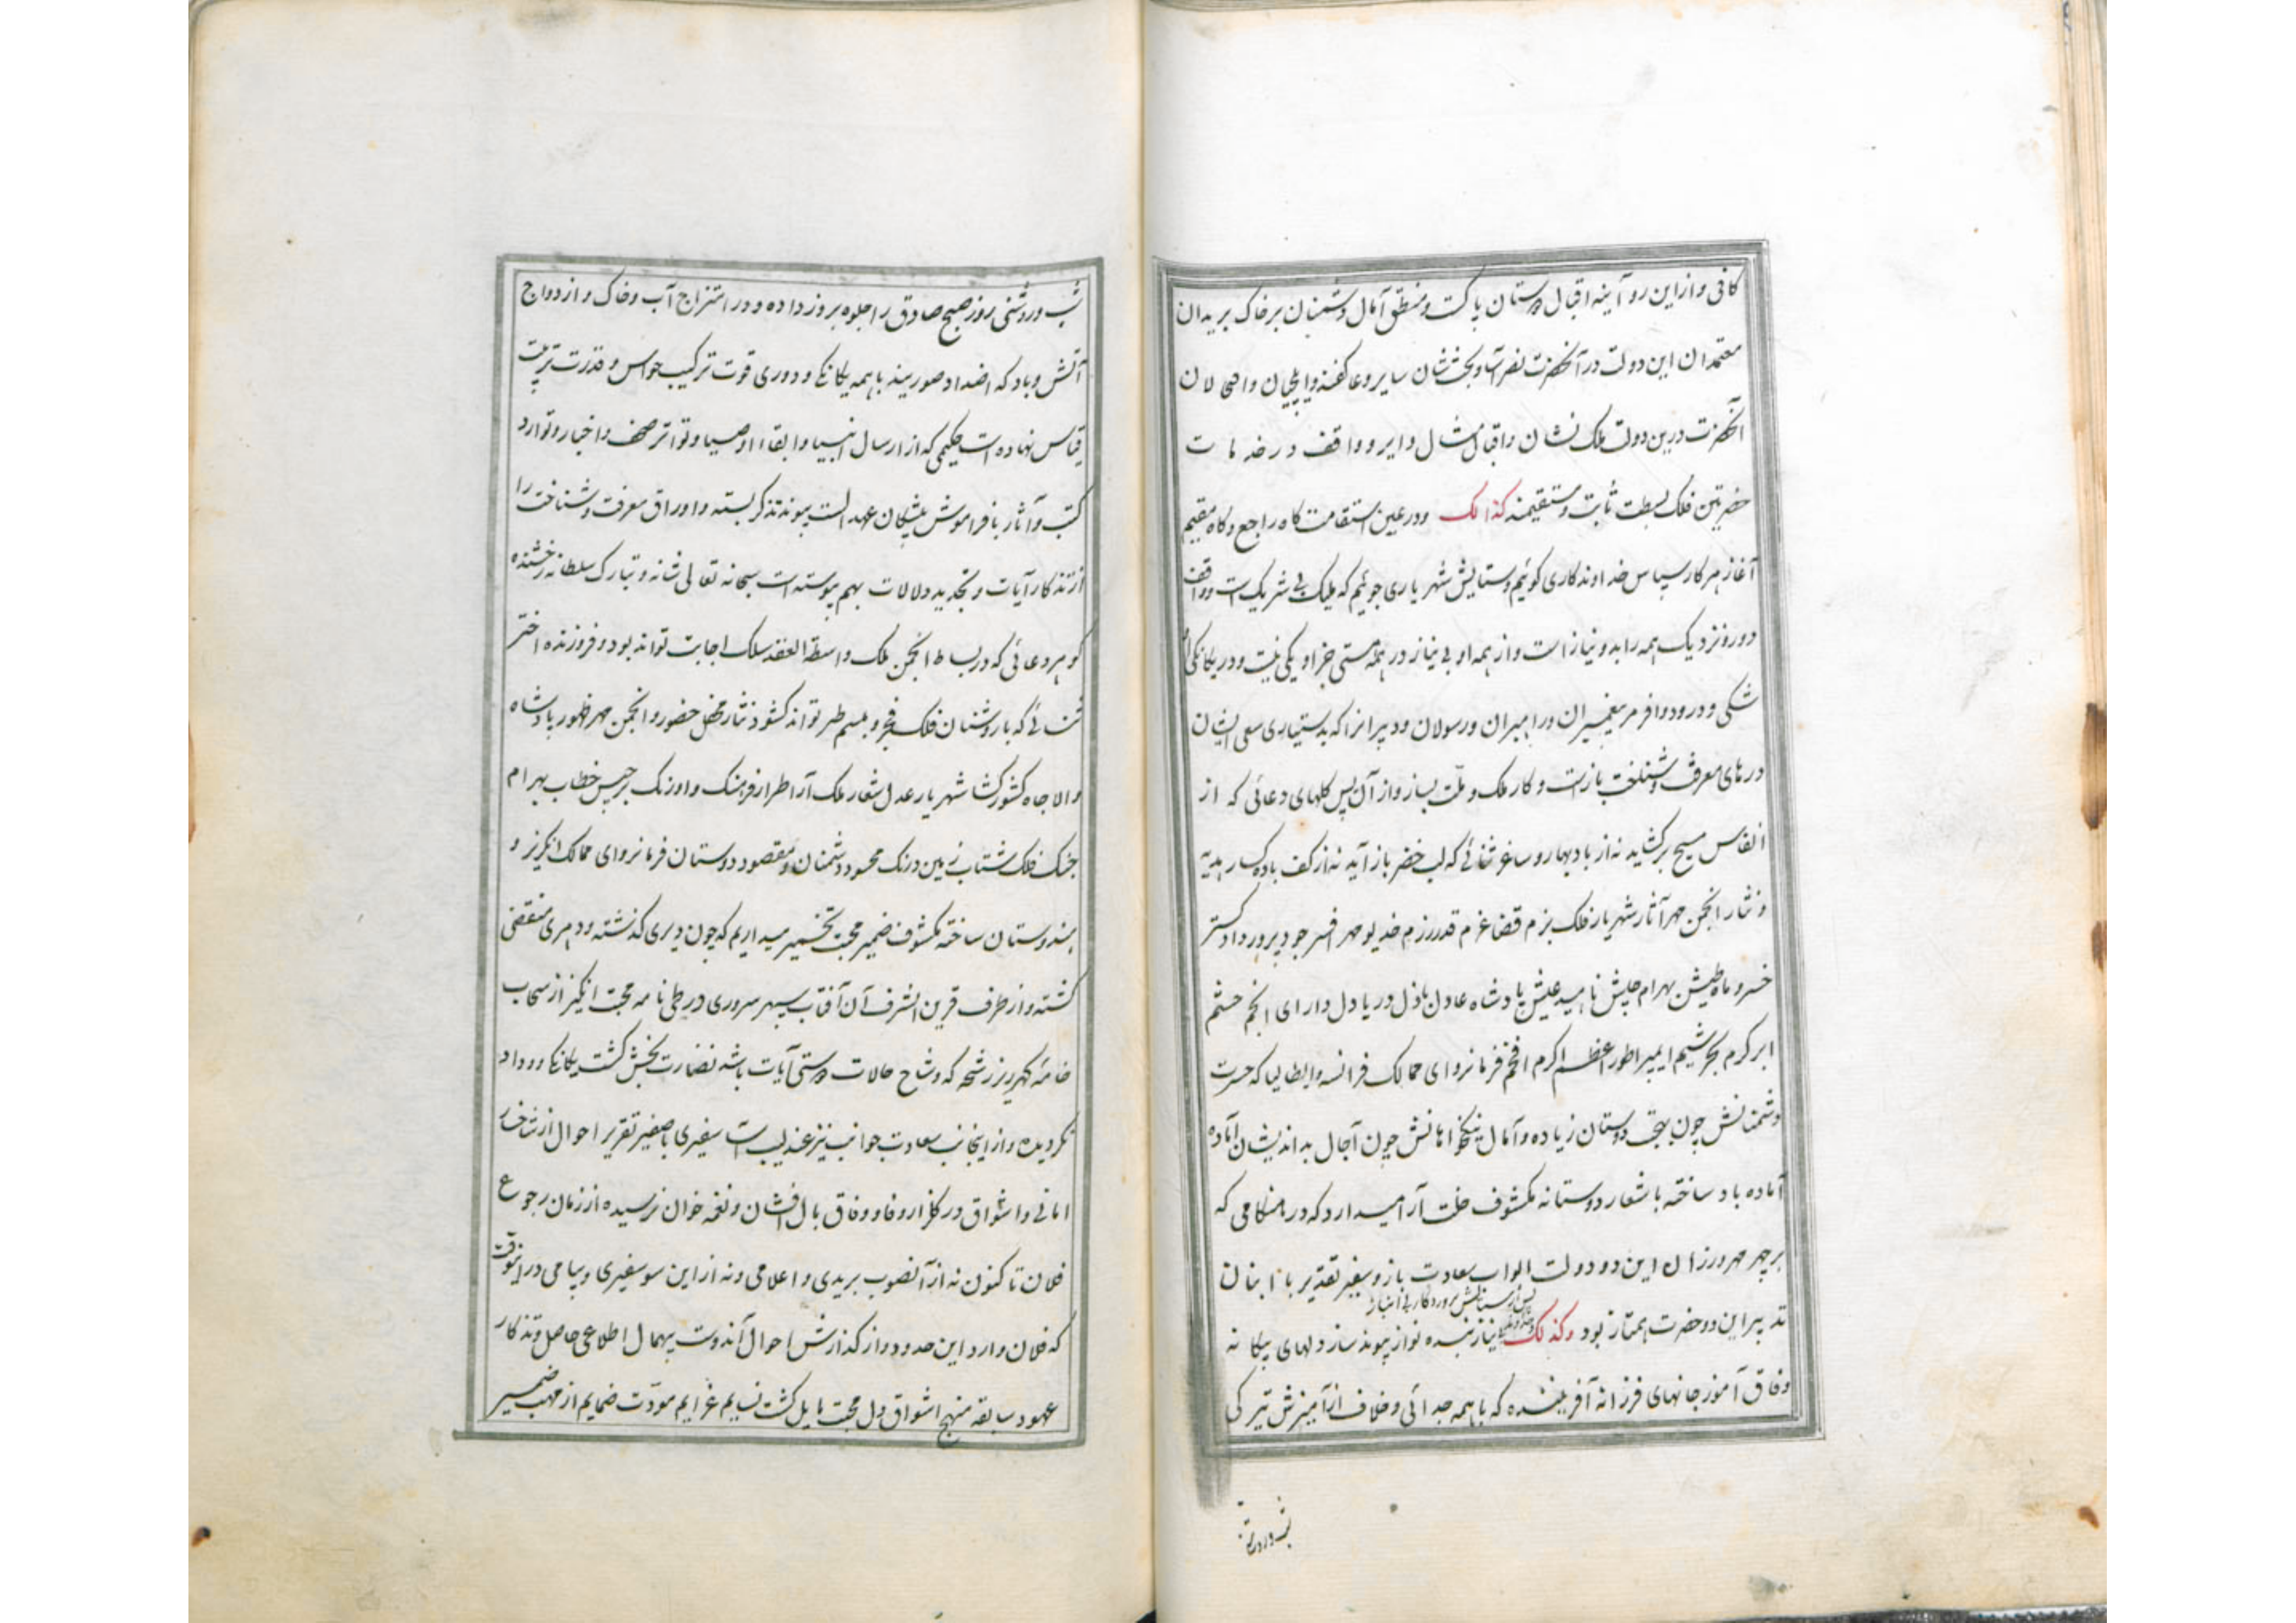 کافی و از این رو آینه اقبال دوستان پاکست و منطق آمال دشمنان بر خاک بریدان
معتمدان این دولت در آنحضرت نصرت آسا و بخشش شان سایر و عاکفند و ایلچیان و اصحالان
آنحضرت درین دولت ملک نشان و اقبال مثال دایر و واقف در خدمات
حضرتین فلک بسطت ثابت و مستقیمند کذالک و در عین استقامت کاه راجع و کاه مقیم
آغاز هر کار سپاس خداوندکاری کوئیم و ستایش شهریاری جوئیم که ملیک بی شریک است و واقف
دور و نزدیک همه را بدو نیاز است و از همه او بی نیاز در همه هستی جز او یکی نیست و در یکانکی او
شکی و درود وافر مر پیغمبران و راهبران و رسولان و دبیرانرا که بدستیاری سعی ایشان
درهای معرفت و شناخت باز است و کار ملک و ملّت بساز و از آن پس کلهای دعائی که از
انفاس مسیح برکشاید نه از باد بهار و ساغر ثنائی که لب خضر باز آید نه از کف باده کسار هدیه
و نثار انجمن مهر آثار شهریار فلک بزم قضا عزم قدر رزم خدیو مهر افسر جود پرور داد کستر
خسرو ماه طیش بهرام جیش ناهید عیش پادشاه عادل باذل دریا دل دارای انجم حشم
ابر کرم بحر شیم ایمپراطور اعظم اکرم افخم فرمانروای ممالک فرانسه و ایطالیا که حسرت
دشمنانش چون بهجت دوستان زیاده و آمال نیکخواهانش چون آجال بداندیشان آماده
آماده باد ساخته باشعار دوستانه مکشوف خلت آرا میدارد که در هنکامی که
بر چهر مهرورزان این دو دولت ابواب سعادت باز و سفیر تقدیر با ابنان
پس از ستایش پروردکار بی انباز
تدبیر این دو حضرت همتاز بود وکذلک نیاز بنده نواز پیوند ساز دلهای بیکانه
وفاق آموز جانهای فرزانه آفریننده که با همه جدائی و خلاف از آمیزش تیرکی
شب و روشنی
شب و روشنی روز صبح صادق را جلوه بروز داده و در امتزاج آب و خاک و ازدواج
آتش و باد که اضداد صورینه با همه یکانکی و دوری قوت ترکیب حواس و قدرت تربیت
قیاس نهاده است حکیمی که از ارسال انبیا و ابقاء اوصیا و تواتر صحف و اخبار و توارد
کتب و آثار با فراموش پیشکان عهد الست پیوند تذکر بسته و اوراق معرفت و شناخت را
از تذکار آیات و تجدید دلالات بهم پیوسته است سبحانه تعالی شانه و تبارک سلطانه رخشنده
کوهر دعائی که در بساط انجمن ملک واسطة العقد سلک اجابت تواند بود و فروزنده اختر
ثنائی که با روشنان فلک فجر و مبسم طر تواند کشود نثار محفل حضور و انجمن مهر ظهور پادشاه
والا جاه کشور کشا شهریار عدل شعار ملک آرا طراز فرهنک و اورنک برجیس خطاب بهرام
جنک فلک شتاب زمین درنک محسود دشمنان و مقصود دوستان فرمانروای ممالک انکریز و
هندوستان ساخته مکشوف ضمیر محبت تخمیر میداریم که چون دیری کذشته و دهری منقضی
کشته و از طرف قرین الشرف آن آفتاب سپهر سروری در طی نامه محبت انکیز از سحاب
خامه کهرریز رشحه که وشاح حالات دوستی آیات باشد نضارت بخش کشت یکانکی و وداد
نکردیده و از اینجانب سعادت جوانب نیز عندلیب است سفیری با صفیر تقریر احوال از شاخسار
امانی و اشواق در کلزار وفا و وفاق بال افشان و نغمه خوان نرسیده از زمان رجوع
فلان تا کنون نه از آنصوب بریدی و اعلامی و نه از این سو سفیری و پیامی در اینوقت
که فلان وارد این حدود و از کذارش احوال آندوست بیهمال اطلاعی حاصل و تذکار
عهود سابقه منهج اشواق دل محبت مایل کشت نسایم عزایم مودّت ضمایم از مهب ضمیر